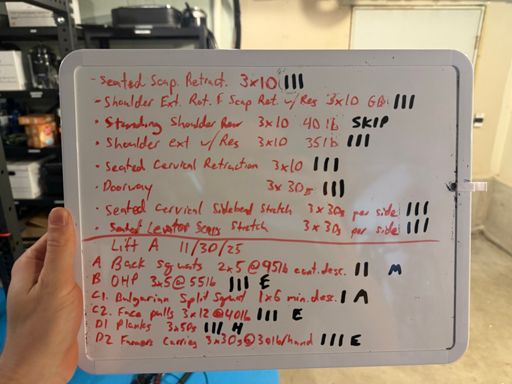 · Seated Scap. Retract. 3x10 |||
· Shoulder Ext. Rot. & Scap Rot. w/Res 3x10 GB |||
· Standing Shoulder Row 3x10 40 lb SKIP
· Shoulder ext w/Res 3x10 35lb |||
· Seated Cervical Retraction 3x10 |||
· Doorway 3x30s |||
· Seated Cervical Sidebend Stretch 3x30s per side |||
· Seated Levator Scap Stretch 3x30s per side |||
Lift A 11/30/25
A Back squats 2x5@95lb cont.desc. || M
B OHP 3x5@55lb ||| E
C1. Bulgarian Split Squat 1x6 min.des. | A
C2. Face pulls 3x12@40lb ||| E
D1 Planks 3x50s ||| H
D2 Farmers Carries 3x30s@30lb/hand ||| E